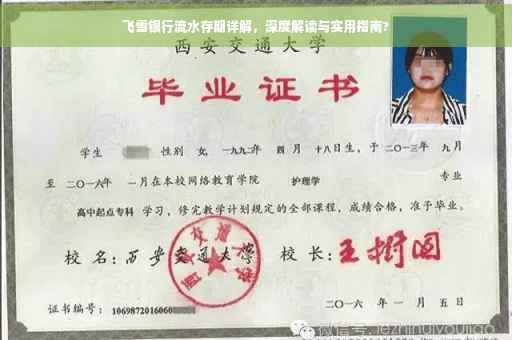 飞雪银行流水存期详解，深度解读与实用指南？
西安交通大学
毕业证书
学生 性别 女，一九九二年 四月 十八日生，于二〇一三年 九月
至 二〇一六年 一月在本校网络教育学院 护理学 专业
高中起点专科 学习，修完教学计划规定的全部课程，成绩合格，准予毕业。
校名：西安交通大学 校长：王树国
西安交通大学
证书编号：1069872016060
二〇一六年 一月 五日
微信号：jiezhinuiyoujiao